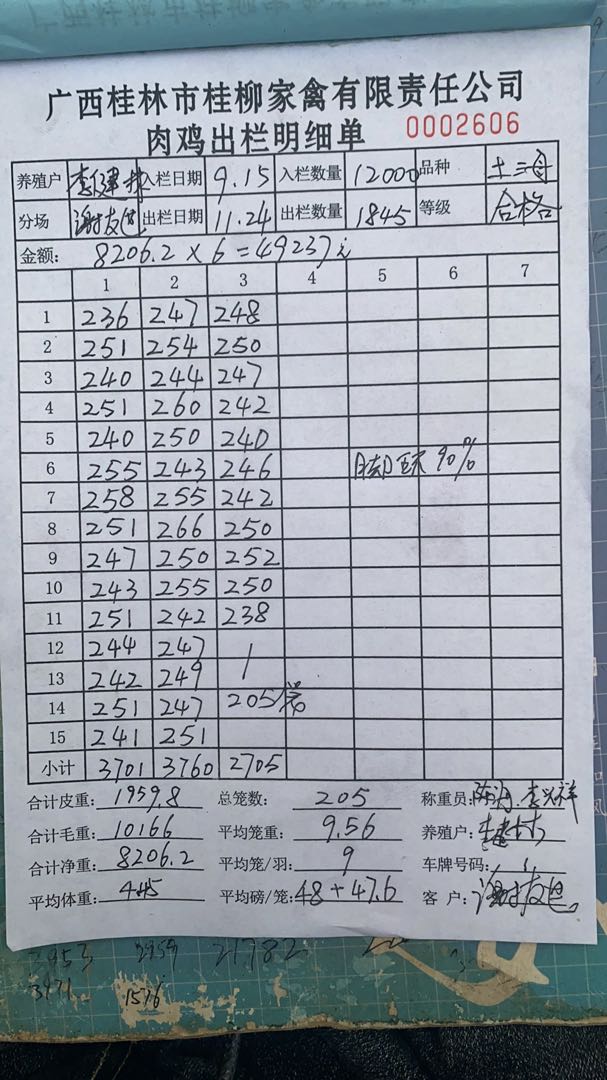 广西桂林市桂柳家禽有限责任公司
肉鸡出栏明细单 0002606
养殖户 李健林 入栏日期 9.15 入栏数量 12000 品种 土三
分场 谢友 出栏日期 11.24 出栏数量 1845 等级 合格
金额: 8206.2 × 6 = 49237
1 2 3 4 5 6 7
1 236 247 248
2 251 254 250
3 240 244 247
4 251 260 242
5 240 250 240
6 255 243 246 90%
7 258 255 242
8 251 266 250
9 247 250 252
10 243 255 250
11 251 242 238
12 244 247
13 242 249
14 251 247 205/笼
15 241 251
小计 3701 3760 2705
合计皮重: 1959.8 总笼数: 205 称重员:
合计毛重: 10166 平均笼重: 9.56 养殖户:
合计净重: 8206.2 平均笼/羽: 9 车牌号码:
平均体重: 平均磅/笼: 48+47.6 客 户:
2953 2959 21782
3971 1576